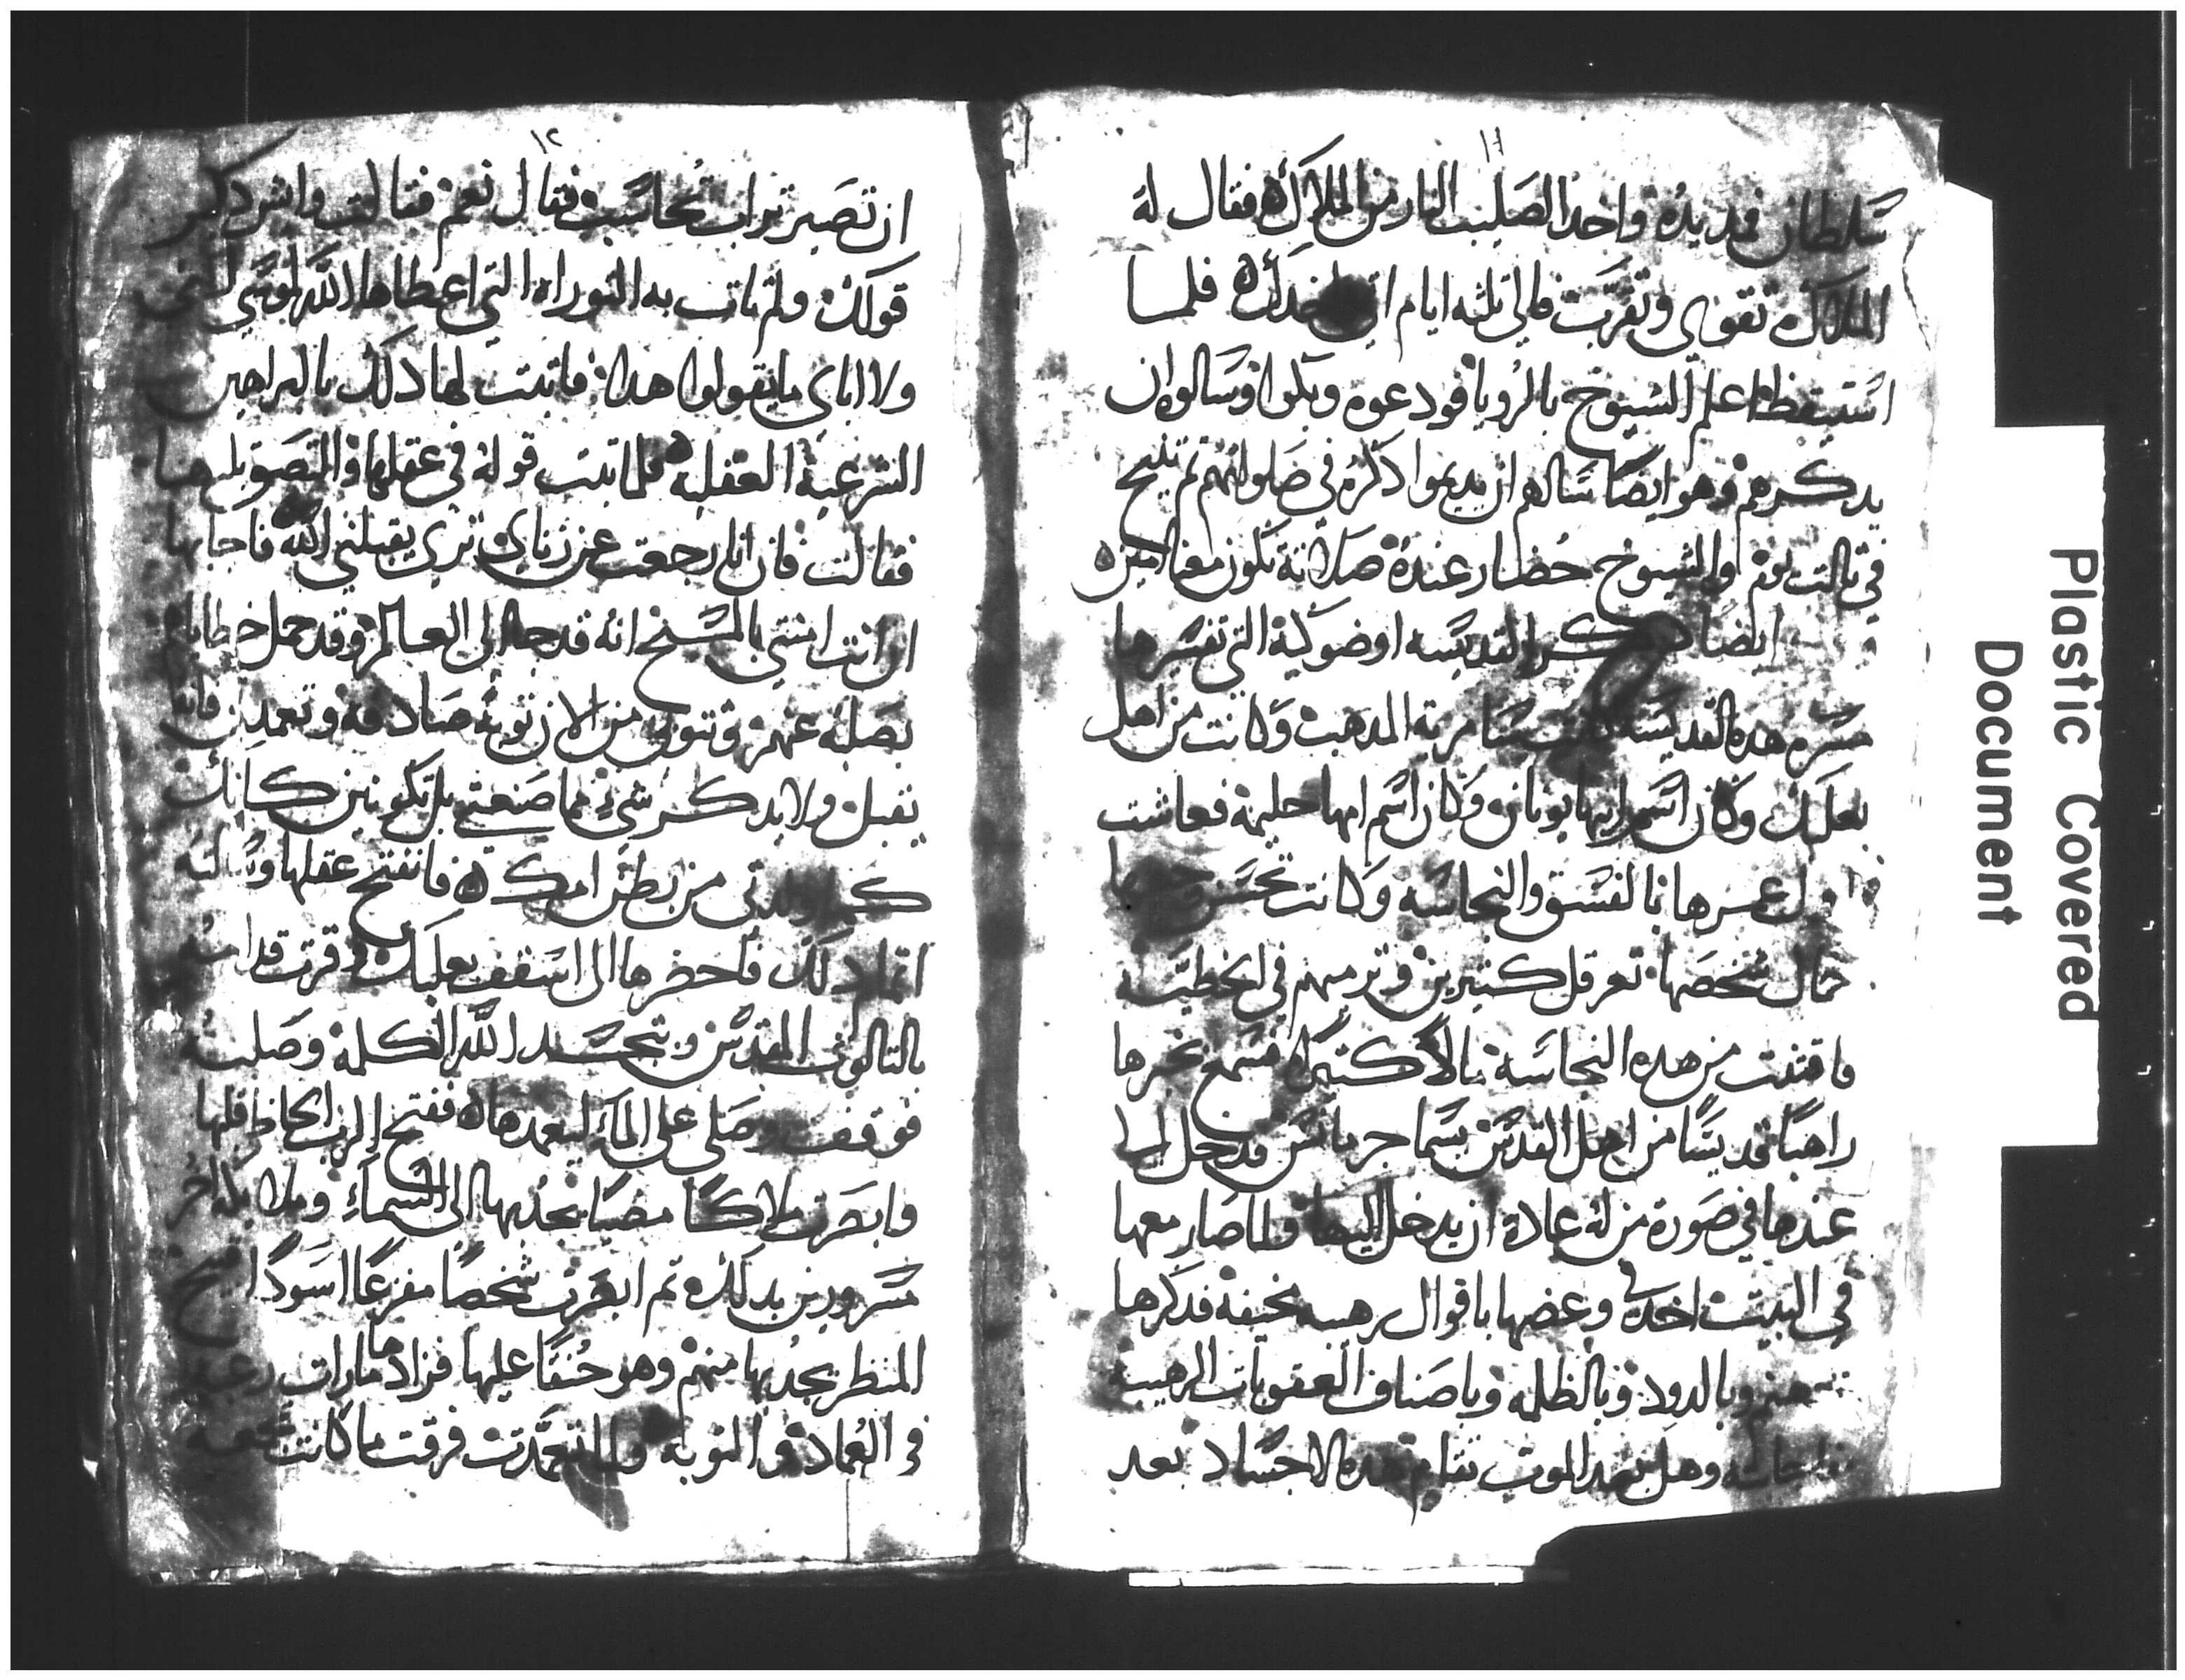 ١١
سلطان فمد يده واخد الصليب النار من الملاك فقال له
الملاك تقوى وتقرب فالى ثلثه ايام اتى لاخدك فلما
استيقظ اعلم الشيوخ بالرويا فودعوه وبكوا وسالوه ان
يدكرهم وهو ايضا سالهم ان يديموا ذكره في صلواتهم ثم تنيح
في تالت يوم والشيوخ حضار عنده صلاته تكون معنا امين
ايضا القديسه اوضوكية التي تفسيرها
مسره هده القديسه كانت سامرية المدهب وكانت من اهل
بعلبك وكان اسم ابيها يونان وكان اسم امها حليمة فعاشت
اول عمرها بالفسق والنجاسه وكانت تحسن وجهها
جمال شخصها تعرقل كتيرين وترميهم في الخطيه
فاقتنت من هده النجاسة مالا كتيرا فسمع بخبرها
راهبا قديسا من اهل القدس يسما جرمانس فدخل لها
عندها في صورة من له عادة ان يدخل اليها ولما صار معها
في البيت اخد في وعضها باقوال رهيبه مخيفة فدكرها
جهنم وبالدود وبالظلمه وباصناف العقوبات الرهيبة
فاجابته وهل بعد الموت تقام هده الاجساد بعد
١٢
ان تصير تراب تحاسب فقال نعم فقالت وايش دكر
قولك ولم تات به التوراه التي اعطاها الله لموسي
ولا اباي ما يقولوا هدا فاتبت لها دلك بالبراهين
الشرعية العقلية فلما تبت قوله في عقلها
فقالت فان انا رجعت عن زناي ترى يقبلني الله فاجابها
ان انت امنتي بالمسيح انه قد جا الى العالم وقد حمل خطايا
بصلبه عنهم وتتوبي من الان توبة صادقه وتعمدين فانه
يقبلك ولا يدكر شيء مما صنعتي بل تكونين كانك
كما ولدتي من بطن امك فانفتح عقلها وسالته
اتمام دلك فاحضرها الى اسقف بعلبك وقرت قدامه
بالتالوث المقدس وتجسد الله الكلمة وصلبه
فوقف وصلى على الما ليعمدها ففتح الرب الحاظ قلبها
وابصرت ملاكا مضيا يجدبها الى السماء وملايكه اخر
مسرورين بدلك تم ابصرت شخصا مفزعا اسودا قبيح
المنظر يجدبها منهم وهو حنقا عليها فزادها مارات رغبة
في العماد والتوبه ولما تعمدت فرقت ما كانت تجمعه
Plastic Covered
Document